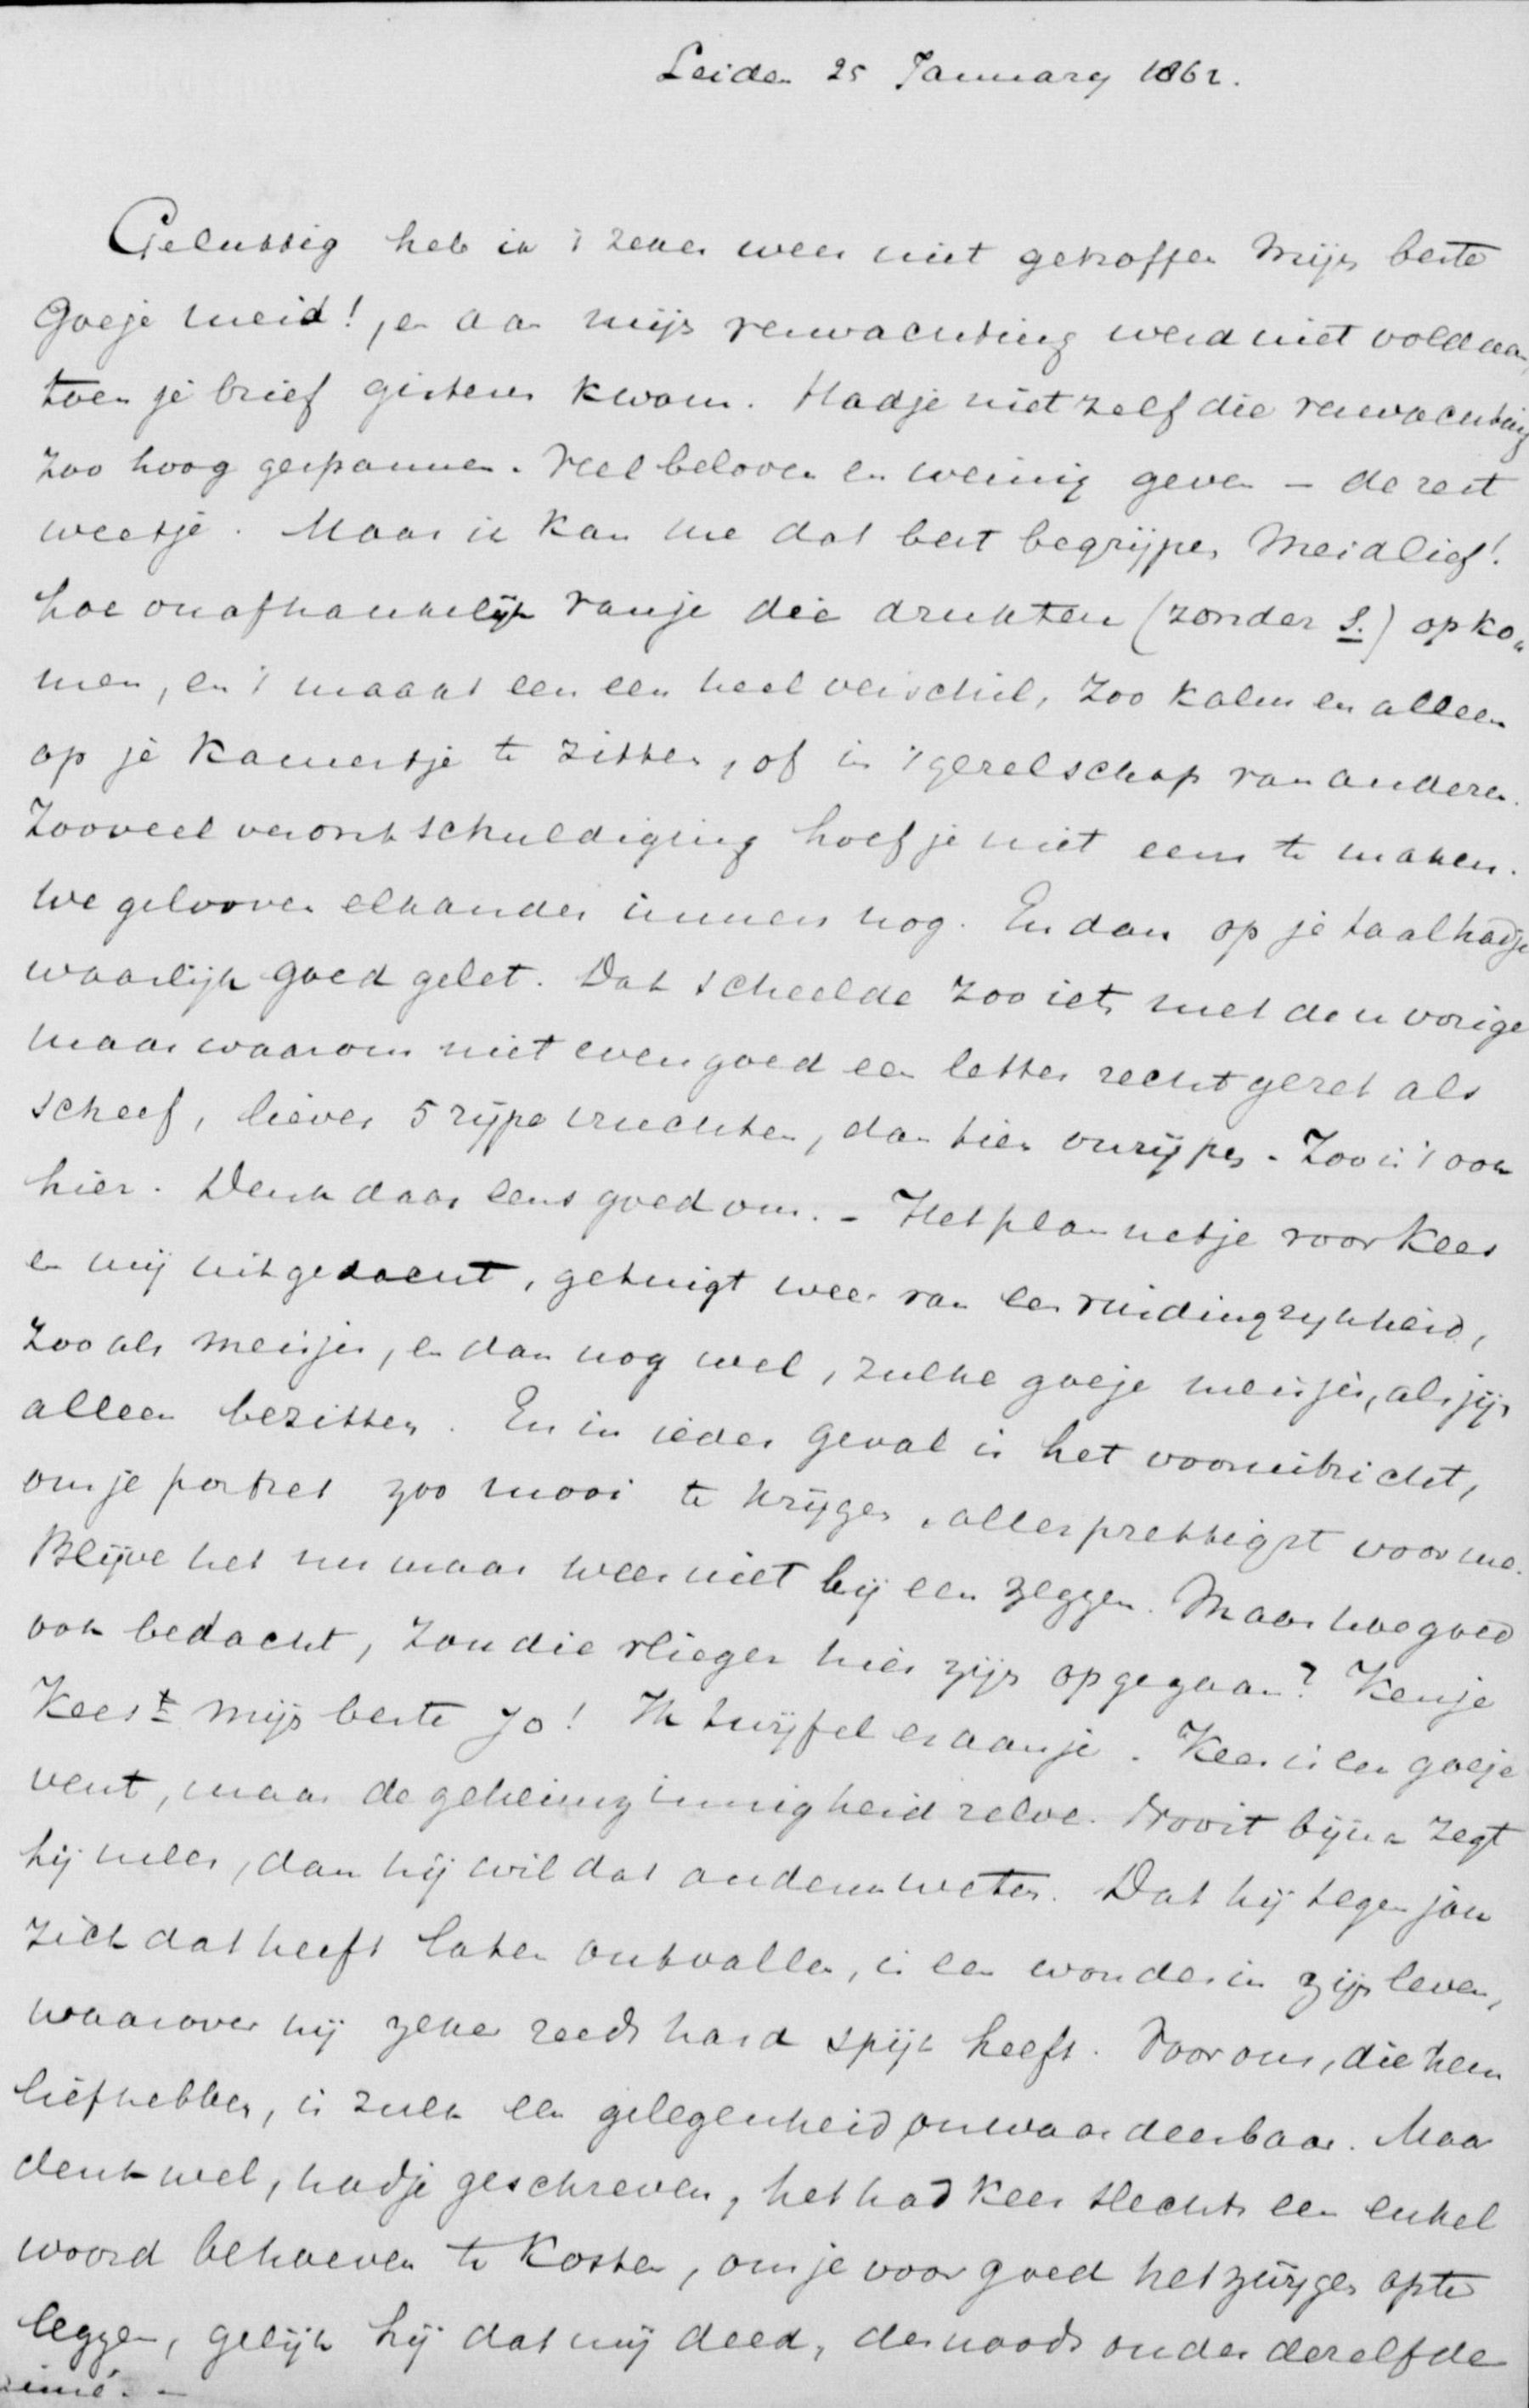 Leiden 25 January 1862.
Gelukkig heb ik 't zeker weer niet getroffen mijn beste
goeje meid!, en aan mijn verwachting werd niet voldaan,
toen je brief gisteren kwam. Hadje niet zelf die verwachting
zoo hoog gespannen. Veel beloven en weinig geven – de rest
weetje. Maar ik kan me dat best begrijpen Meidlief!
hoe onafhankelijk vanje die drukten (zonder s.) opko-
men, en 't maakt een een heel verschil, zoo kalm en alleen
op je kamertje te zitten, of in 't gezelschap van anderen.
Zooveel verontschuldiging hoefje niet eens te maken.
We gelooven elkander immers nog. En dan op je taal hadje
waarlijk goed gelet. Dat scheelde zoo iets met den vorige
maar waarom niet even goed een letter recht gezet als
scheef, liever 5 rijpe vruchten, dan tien onrijpen. Zoo is 't ook
hier. Denk daar eens goed om. – Het plannetje voor Kees
en mij uitgedacht, getuigt weer van een vindingrykheid,
zooals meisjes, en dan nog wel, zulke goeje meisjes, als jij,
alleen bezitten. En in ieder geval is het vooruitzicht,
om je portret zoo mooi te krijgen, allerprettigst voor me.
Blijve het nu maar weer niet bij een zeggen. Maar hoe goed
ook bedacht, zou die vlieger hier zijn opgegaan? Kenje
Kees t mijn beste Jo! Ik twijfel er aan je. Kees is een goeje
vent, maar de geheimzinnigheid zelve. Nooit bijna zegt
hij meer, dan hij wil dat anderen weten. Dat hij tegen jou
zich dat heeft laten ontvallen, is een wonder in zijn leven,
waarover hij zeker reeds hard spijt heeft. Voor ons, die hem
liefhebben, is zulk een gelegenheid onwaardeerbaar. Maar
denk wel, hadje geschreven, het had Kees slechts een enkel
woord behoeven te kosten, om je voor goed het zwijgen op te
leggen, gelijk hij dat mij deed, desnoods onder dezelfde